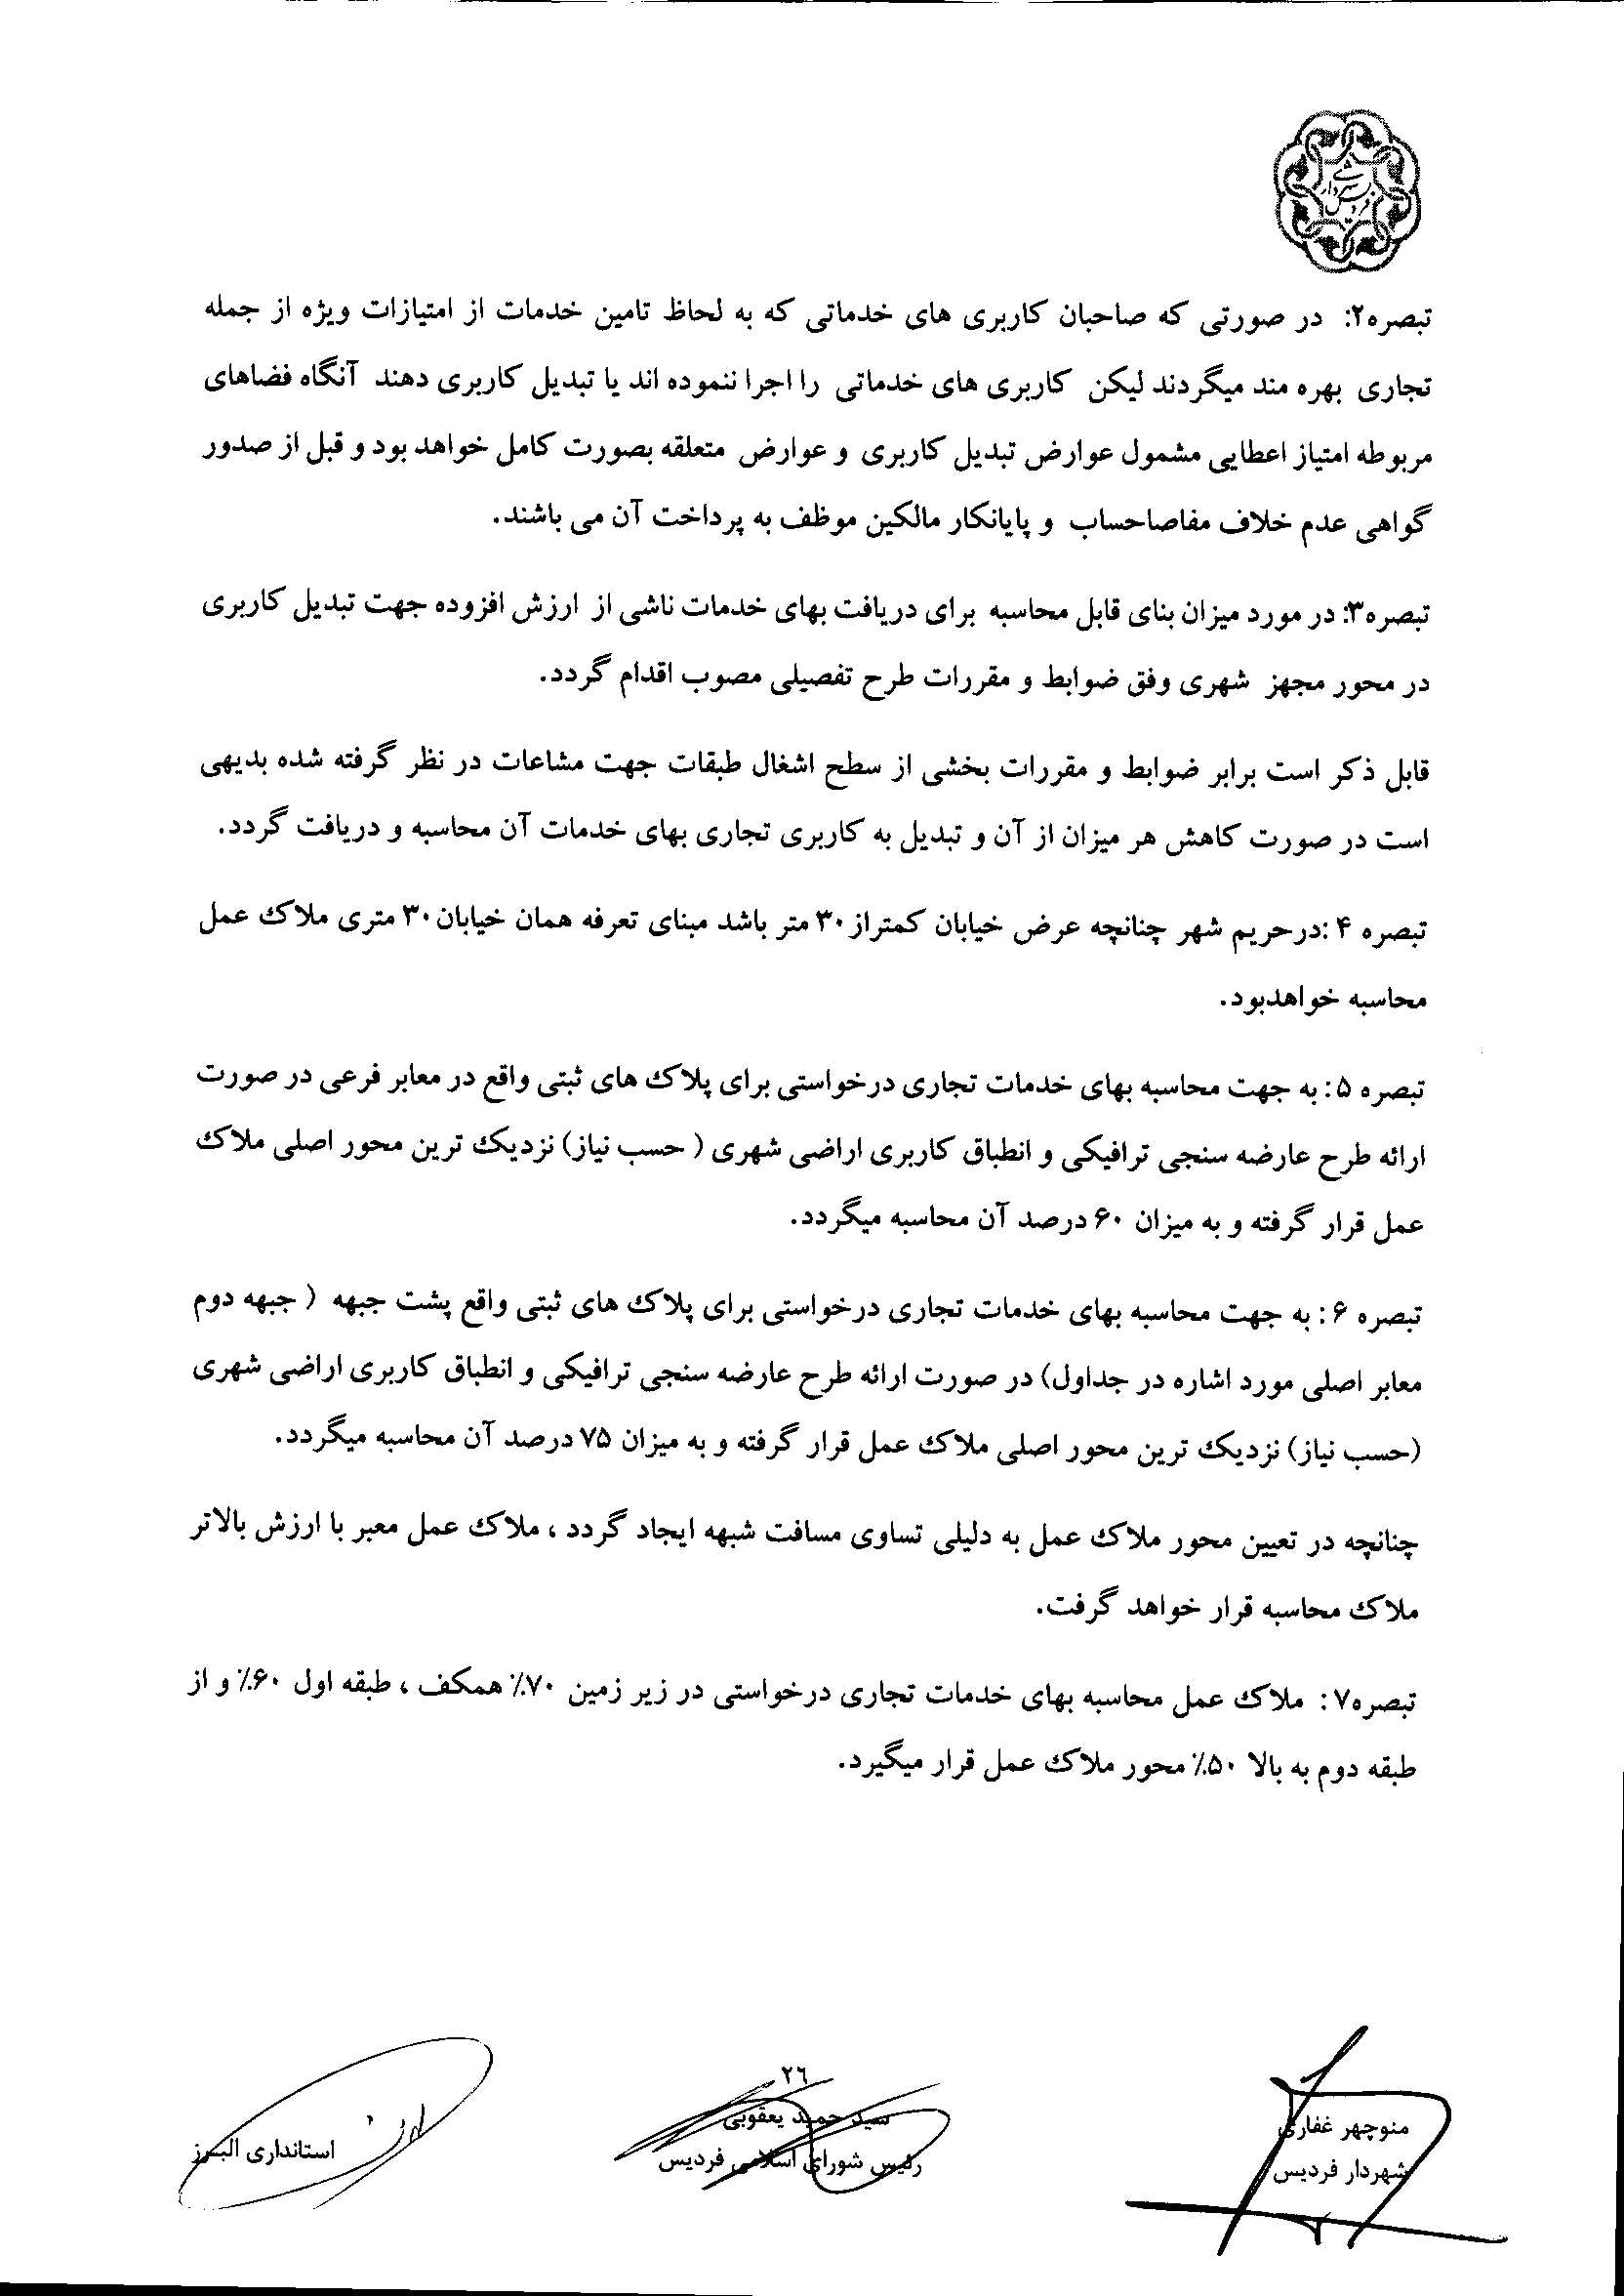 شهرداری فردیس
تبصره۲: در صورتی که صاحبان کاربری های خدماتی که به لحاظ تامین خدمات از امتیازات ویژه از جمله
تجاری بهره مند میگردند لیکن کاربری های خدماتی را اجرا ننموده اند یا تبدیل کاربری دهند آنگاه فضاهای
مربوطه امتیاز اعطایی مشمول عوارض تبدیل کاربری و عوارض متعلقه بصورت کامل خواهد بود و قبل از صدور
گواهی عدم خلاف مفاصاحساب و پایانکار مالکین موظف به پرداخت آن می باشند.
تبصره۳: در مورد میزان بنای قابل محاسبه برای دریافت بهای خدمات ناشی از ارزش افزوده جهت تبدیل کاربری
در محور مجهز شهری وفق ضوابط و مقررات طرح تفصیلی مصوب اقدام گردد.
قابل ذکر است برابر ضوابط و مقررات بخشی از سطح اشغال طبقات جهت مشاعات در نظر گرفته شده بدیهی
است در صورت کاهش هر میزان از آن و تبدیل به کاربری تجاری بهای خدمات آن محاسبه و دریافت گردد.
تبصره ۴ :درحریم شهر چنانچه عرض خیابان کمتراز۳۰ متر باشد مبنای تعرفه همان خیابان۳۰ متری ملاک عمل
محاسبه خواهدبود.
تبصره ۵: به جهت محاسبه بهای خدمات تجاری درخواستی برای پلاک های ثبتی واقع در معابر فرعی در صورت
ارائه طرح عارضه سنجی ترافیکی و انطباق کاربری اراضی شهری ( حسب نیاز) نزدیک ترین محور اصلی ملاک
عمل قرار گرفته و به میزان ۶۰ درصد آن محاسبه میگردد.
تبصره ۶: به جهت محاسبه بهای خدمات تجاری درخواستی برای پلاک های ثبتی واقع پشت جبهه ( جبهه دوم
معابر اصلی مورد اشاره در جداول) در صورت ارائه طرح عارضه سنجی ترافیکی و انطباق کاربری اراضی شهری
(حسب نیاز) نزدیک ترین محور اصلی ملاک عمل قرار گرفته و به میزان ۷۵ درصد آن محاسبه میگردد.
چنانچه در تعیین محور ملاک عمل به دلیلی تساوی مسافت شبهه ایجاد گردد ، ملاک عمل معبر با ارزش بالاتر
ملاک محاسبه قرار خواهد گرفت.
تبصره۷: ملاک عمل محاسبه بهای خدمات تجاری درخواستی در زیر زمین ۷۰٪ همکف ، طبقه اول ۶۰٪ و از
طبقه دوم به بالا ۵۰٪ محور ملاک عمل قرار میگیرد.
۲۶
منوچهر غفاری
شهردار فردیس
سید حمید یعقوبی
رئیس شورای اسلامی فردیس
استانداری البرز